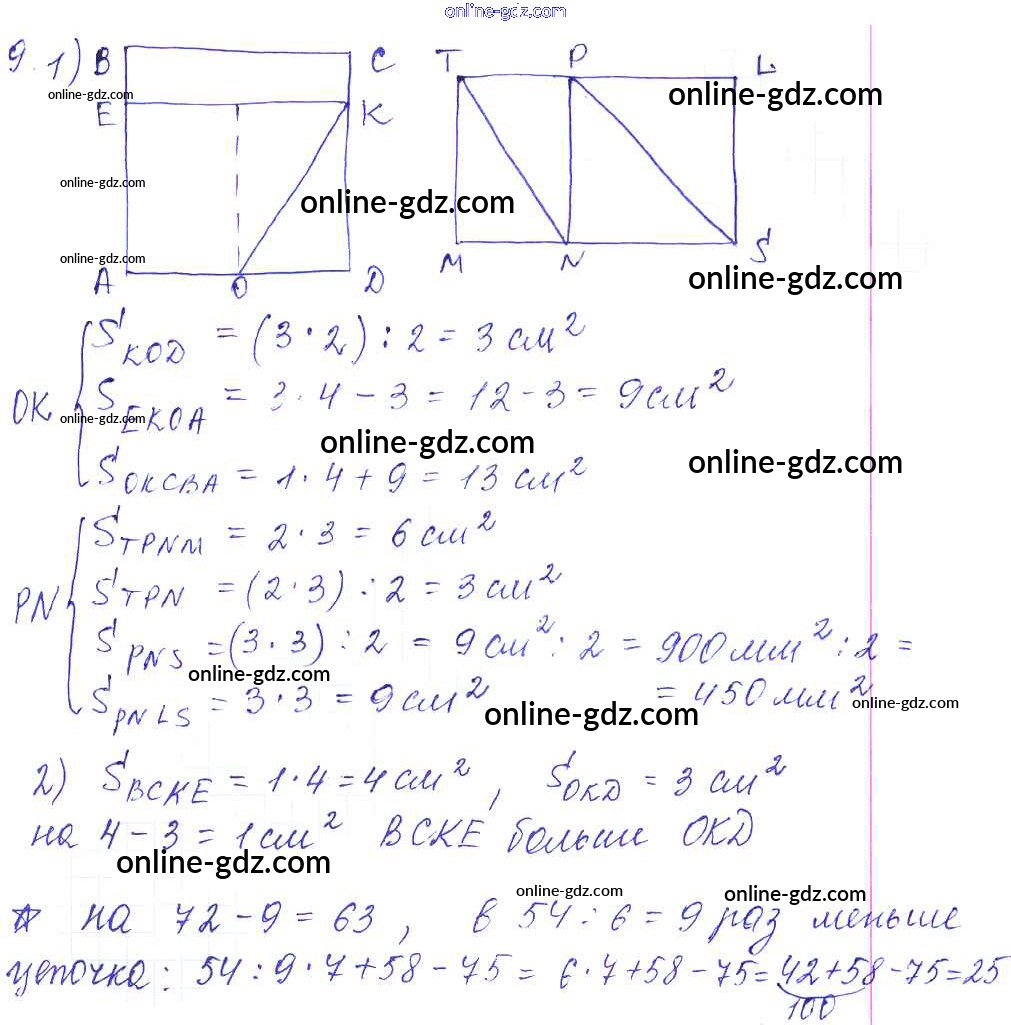 online-gdz.com
9.1) B C T P L
online-gdz.com online-gdz.com
E K
online-gdz.com online-gdz.com
online-gdz.com
A O D M N S
online-gdz.com
OK S KOD = (3·2):2 = 3 см²
S EKOA = 3·4-3 = 12-3 = 9 см²
online-gdz.com
online-gdz.com online-gdz.com
S OKCBA = 1·4+9 = 13 см²
PN S TPNM = 2·3 = 6 см²
S TPN = (2·3):2 = 3 см²
S PNS = (3·3):2 = 9 см²:2 = 900 мм²:2 =
online-gdz.com
= 450 мм²
S PNLS = 3·3 = 9 см²
online-gdz.com online-gdz.com
2) S BCKE = 1·4 = 4 см², S OKD = 3 см²
на 4-3 = 1 см² BCKE больше OKD
online-gdz.com
online-gdz.com online-gdz.com
☆ на 72-9 = 63, в 54:6 = 9 раз меньше
цепочка: 54:9·7+58-75 = 6·7+58-75 = 42+58-75 = 25
100